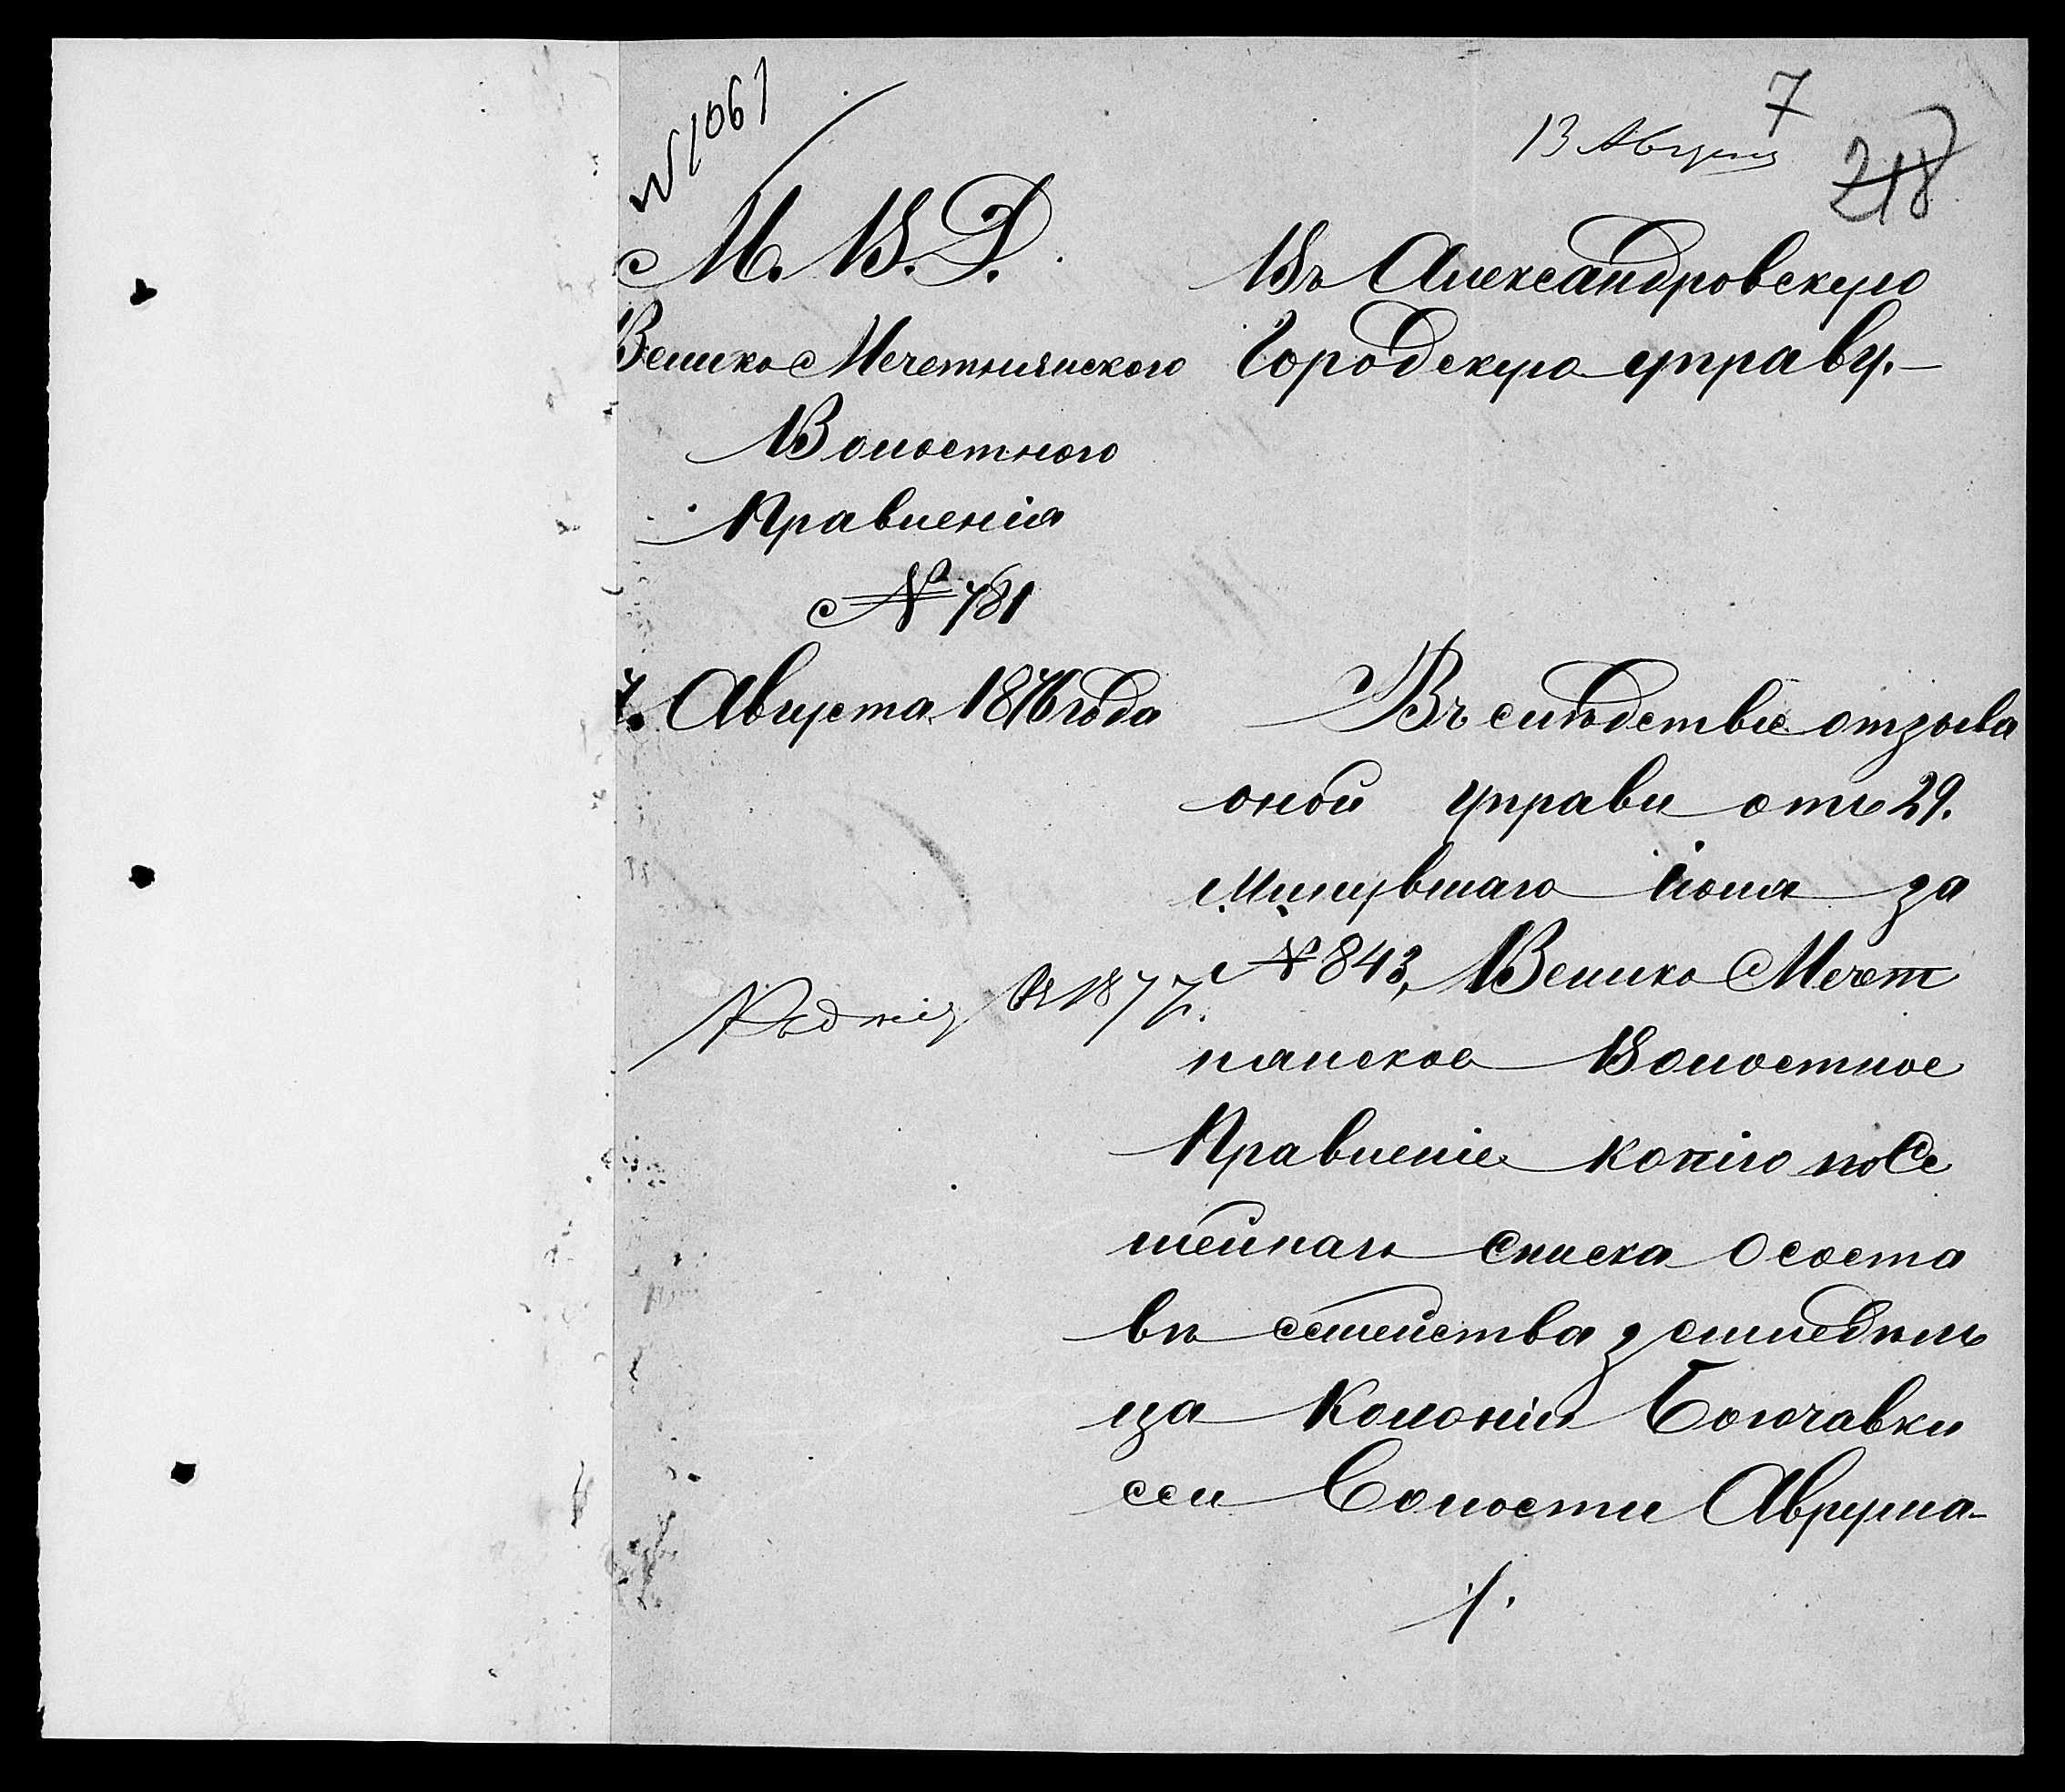 № 1061
13 Августа
7
218
М. В. Д.
Велико Мечетнянского
Волостного
Правленія
№ 781
7. Августа 1876 года
Въ Александровскую
Городскую управу.—
Въ слѣдствіе отзыва
оной управи отъ 29.
Минувшаго Іюля за
№ 843, Велико Мечет
нянское Волостное
Правленіе копію по Се
мейнаго списка о соста
вѣ семейства земледѣль
ца Колоніи Богачавки
сей Волости Аврума-
1877.
/.